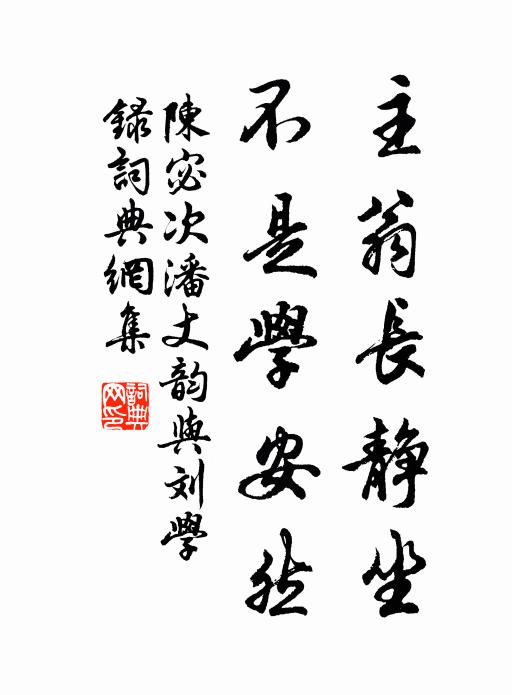 主翁長静坐
不是學安然
陳宓次潘丈韵與刘學
録詞典網集
詞典网印